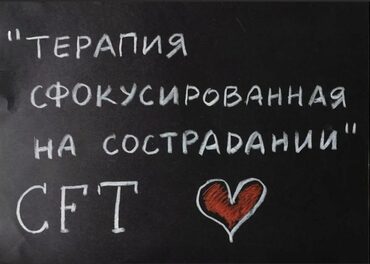 "ТЕРАПИЯ
СФОКУСИРОВАННАЯ
НА СОСТРАДАНИИ"
CFT